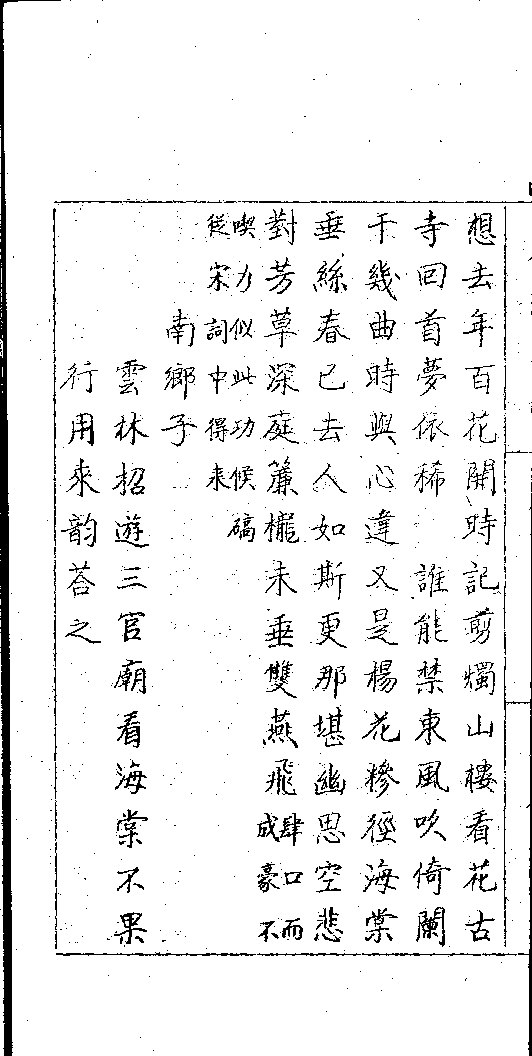 想去年百花開時記剪燭山樓看花古
寺回首夢依稀　誰能禁東風吹倚闌
干幾曲時與心違又是楊花糝徑海棠
垂絲春已去人如斯更那堪幽思空悲
對芳草深庭簾櫳未垂雙燕飛肆口而成豪不
喫力似此功候碻從宋詞中得來
南鄉子
雲林招遊三官廟看海棠不果
行用來韵荅之